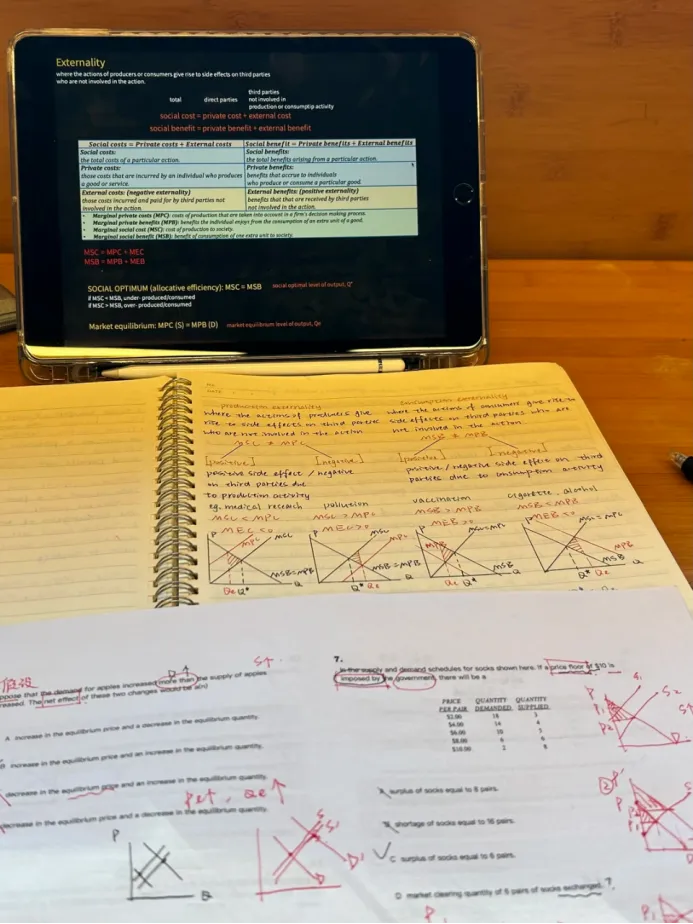 Externality
where the actions of producers or consumers give rise to side effects on third parties
who are not involved in the action.
total direct parties third parties
not involved in
production or consumptip activity
social cost = private cost + external cost
social benefit = private benefit + external benefit
Social costs = Private costs + External costs
Social benefit = Private benefits + External benefits
Social costs:
the total costs of a particular action.
Social benefits:
the total benefits arising from a particular action.
Private costs:
those costs that are incurred by an individual who produces
a good or service.
Private benefits:
benefits that accrue to individuals
who produce or consume a particular good.
External costs: (negative externality)
those costs incurred and paid for by third parties not
involved in the action.
External benefits: (positive externality)
benefits that that are received by third parties
not involved in the action.
• Marginal private costs (MPC): costs of production that are taken into account in a firm's decision making process.
• Marginal private benefits (MPB): benefits the individual enjoys from the consumption of an extra unit of a good.
• Marginal social cost (MSC): cost of production to society.
• Marginal social benefit (MSB): benefit of consumption of one extra unit to society.
MSC = MPC + MEC
MSB = MPB + MEB
SOCIAL OPTIMUM (allocative efficiency): MSC = MSB social optimal level of output, Q*
if MSC < MSB, under- produced/consumed
if MSC > MSB, over- produced/consumed
Market equilibrium: MPC (S) = MPB (D) market equilibrium level of output, Qe
production externality
where the actions of producers give
rise to side effects on third parties
who are not involved in the action
MSC ≠ MPC
[positive] [negative]
positive side effect / negative
on third parties due
to production activity
eg. medical reseach pollution
MSC < MPC MSC > MPC
MEC < 0 MEC > 0
consumption externality
where the actions of consumers give rise to
side effects on third parties who are
not involved in the action.
MSB ≠ MPB
[positive] [negative]
positive/negative side effect on third
parties due to consumption activity
vaccination cigarette, alcohol
MSB > MPB MSB < MPB
MEB > 0 MEB < 0
P MPC MSC MSB=MPB Q Qe Q*
P MSC MPC MSB=MPB Q Q* Qe
P MSC=MPC MPB MSB Q Qe Q*
P MSC=MPC MPB MSB Q Q* Qe
假设
ppose that the demand for apples increased more than the supply of apples
reased. The net effect of these two changes would be a(n)
A increase in the equilibrium price and a decrease in the equilibrium quantity.
increase in the equilibrium price and an increase in the equilibrium quantity.
decrease in the equilibrium price and an increase in the equilibrium quantity.
decrease in the equilibrium price and a decrease in the equilibrium quantity.
Pe↑, Qe↑
P
Q
7.
in the supply and demand schedules for socks shown here. If a price floor of $10 is
imposed by the government, there will be a
PRICE QUANTITY QUANTITY
PER PAIR DEMANDED SUPPLIED
$2.00 18 3
$4.00 14 4
$6.00 10 5
$8.00 6 6
$10.00 2 8
surplus of socks equal to 8 pairs.
shortage of socks equal to 16 pairs.
C surplus of socks equal to 6 pairs.
D market clearing quantity of 6 pairs of socks exchanged.